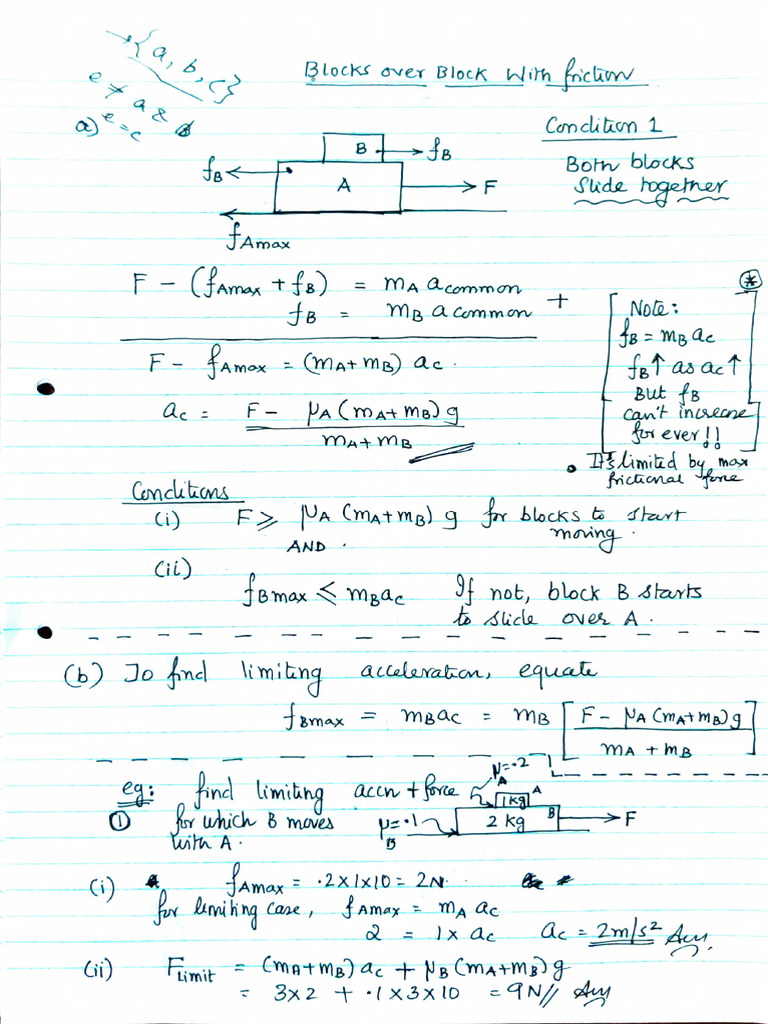 →{a, b, c}
e ≠ a & b
a) e = c
Blocks over Block With friction
Condition 1
Both blocks
Slide together
B → fB
fB ←
A
→ F
fAmax
F - (fAmax + fB) = mA acommon
fB = mB acommon +
F - fAmax = (mA + mB) ac.
ac = F - μA (mA + mB) g
mA + mB
*
Note:
fB = mB ac
fB ↑ as ac ↑
But fB
can't increase
for ever!!
• It's limited by max
frictional force
Conditions
(i) F ⩾ μA (mA + mB) g for blocks to start
moving.
AND.
(ii)
fBmax ⩽ mB ac If not, block B starts
to slide over A.
(b) To find limiting acceleration, equate
fBmax = mB ac = mB [F - μA (mA + mB) g
mA + mB]
eg: find limiting accn + force
① for which B moves
with A.
μA = .2
1kg A
μB = .1
2 kg B → F
(i) fAmax = .2 x 1 x 10 = 2N.
for limiting case, fAmax = mA ac
2 = 1 x ac ac = 2m/s² Ans.
(ii) FLimit = (mA + mB) ac + μB (mA + mB) g
= 3 x 2 + .1 x 3 x 10 = 9N // Ans